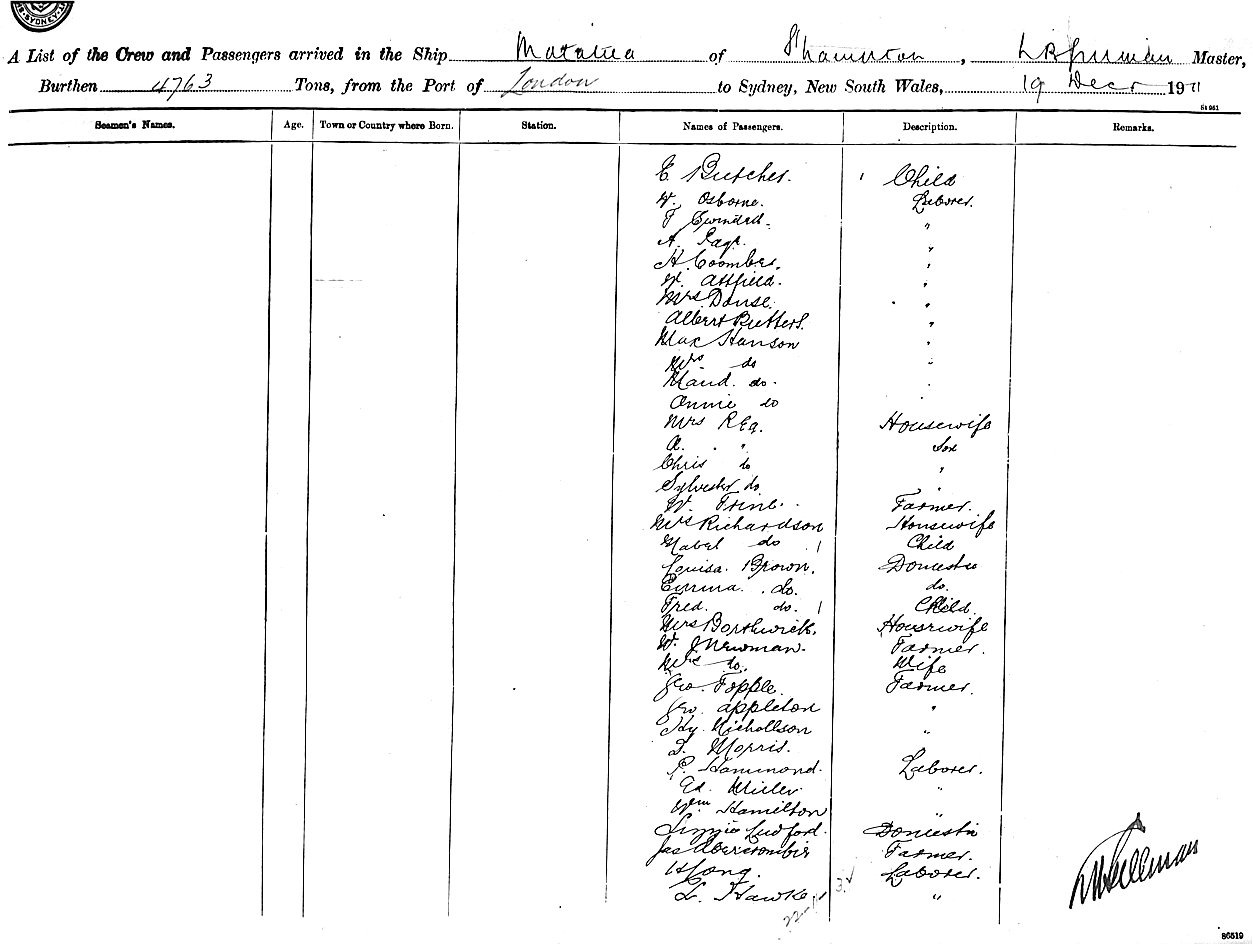 SYDNEY
A List of the Crew and Passengers arrived in the Ship Matatua of S'hampton, Master,
Burthen 4763 Tons, from the Port of London to Sydney, New South Wales, 19 Decr 1911
St 961
Seamen's Names. Age. Town or Country where Born. Station. Names of Passengers. Description. Remarks.
E. Butcher. 1 Child
W. Osborne. Laborer.
T "
A. Page. "
H. Coombes. "
W. Attfield. "
Mrs Danse. "
Albert Butters. "
Max Hanson "
Mrs do "
Maud. do. "
Annie do
Mrs Rea. Housewife
A. " " Son
Chris do "
Sylvester do "
W. Trine. Farmer.
Mrs Richardson Housewife
Mabel do 1 Child
Louisa. Brown. Domestic
Emma. do. do.
Fred. do. 1 Child
Mrs Borthwick. Housewife
W. J Newman. Farmer.
Mrs do. Wife
Geo. Topple. Farmer.
Geo. Appleton "
Hy. Nichollson "
Morris.
P. Hammond. Laborer.
Ed. Miller "
Wm Hamilton "
Lizzie Ludford. Domestic
Jas Abercrombie Farmer.
H Long. Laborer.
L. Hawke "
86519